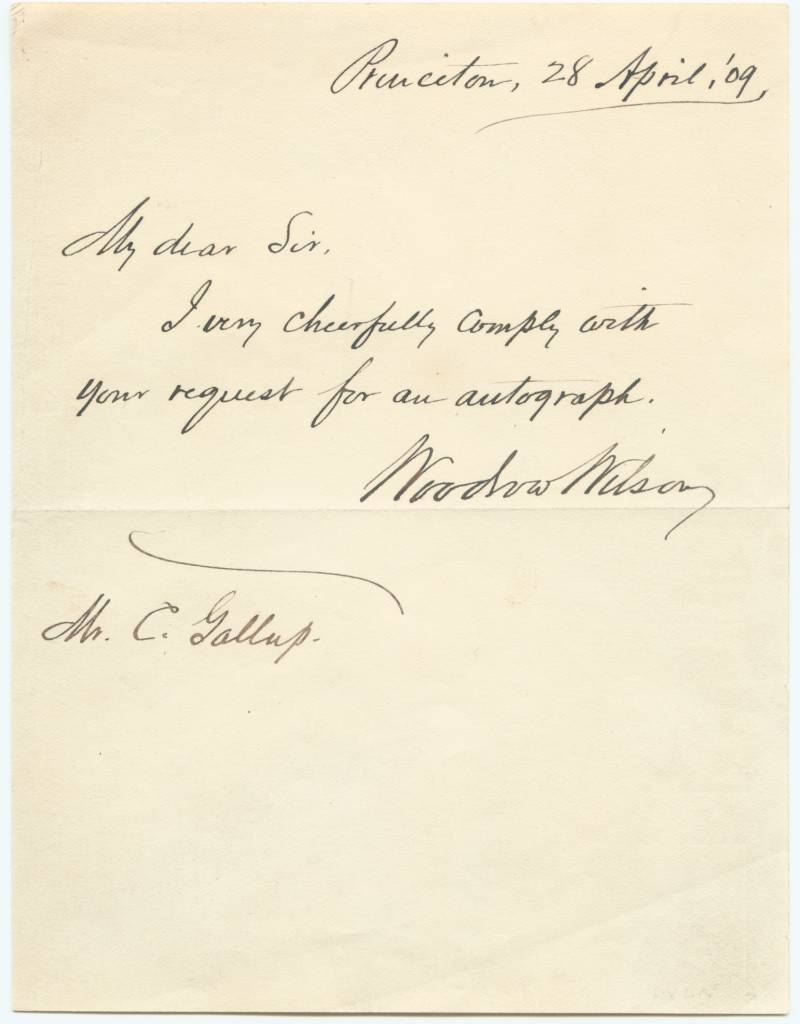 Princeton, 28 April, '09,
My dear Sir,
I very cheerfully comply with
your request for an autograph.
Woodrow Wilson
Mr. C. Gallup.